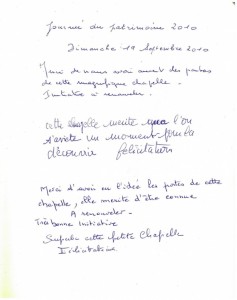 Journée du patrimoine 2010
Dimanche 19 Septembre 2010
Merci de nous avoir ouvert des portes
de cette magnifique chapelle.
Initiative à renouveler.
cette chapelle mérite que l'on
s'arrête un moment pour la
découvrir félicitations
Merci d'avoir eu l'idée les portes de cette
chapelle, elle mérite d'être connue
A renouveler.
Très bonne Initiative
Superbe cette petite Chapelle